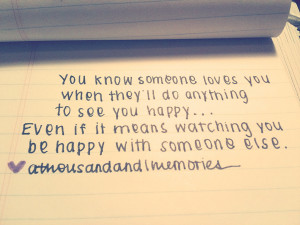 You know someone loves you
when they'll do anything
to see you happy...
Even if it means watching you
be happy with someone else.
athousandand1memories